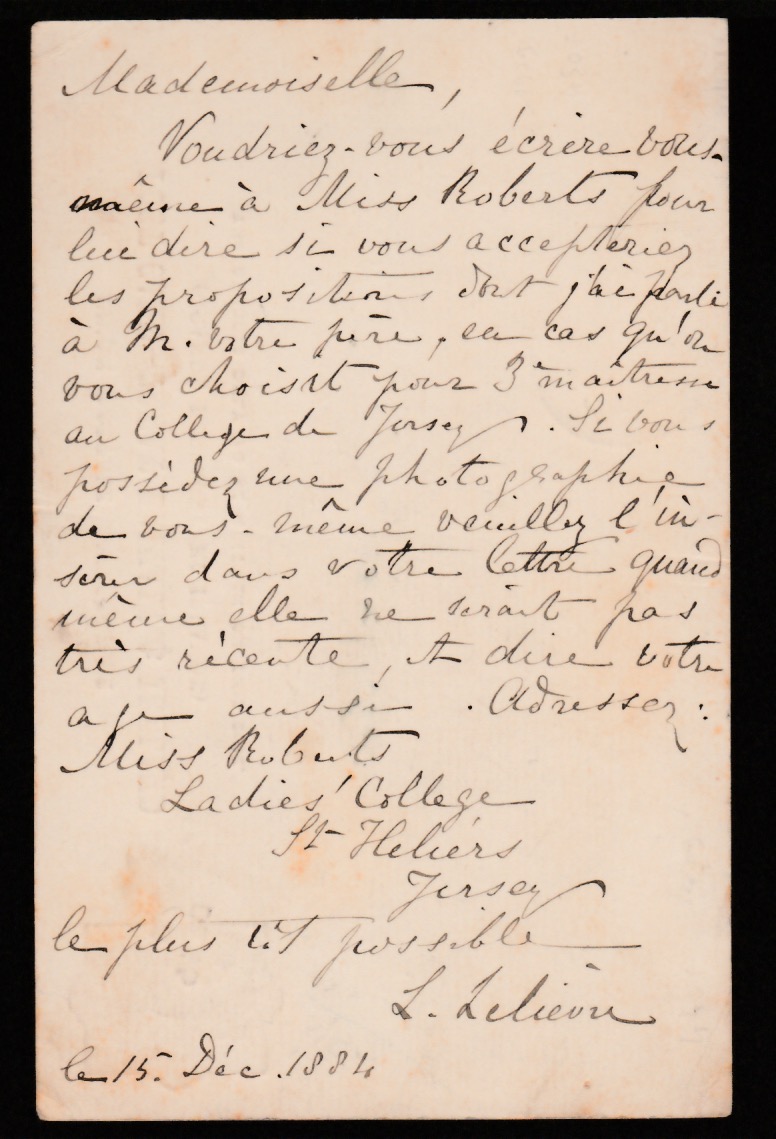 Mademoiselle,
Voudriez-vous écrire vous-
même à Miss Roberts pour
lui dire si vous accepteriez
les propositions dont j'ai parlé
à M. votre père, en cas qu'on
vous choisît pour 3e maîtresse
au College de Jersey. Si vous
possèdez une photographie
de vous-même veuillez l'in-
sérer dans votre lettre quand
même elle ne serait pas
très récente, et dire votre
age aussi. Adressez:
Miss Roberts
Ladies' College
St Heliérs
Jersey
le plus tôt possible
L. Lelièvre
le 15. Déc. 1884